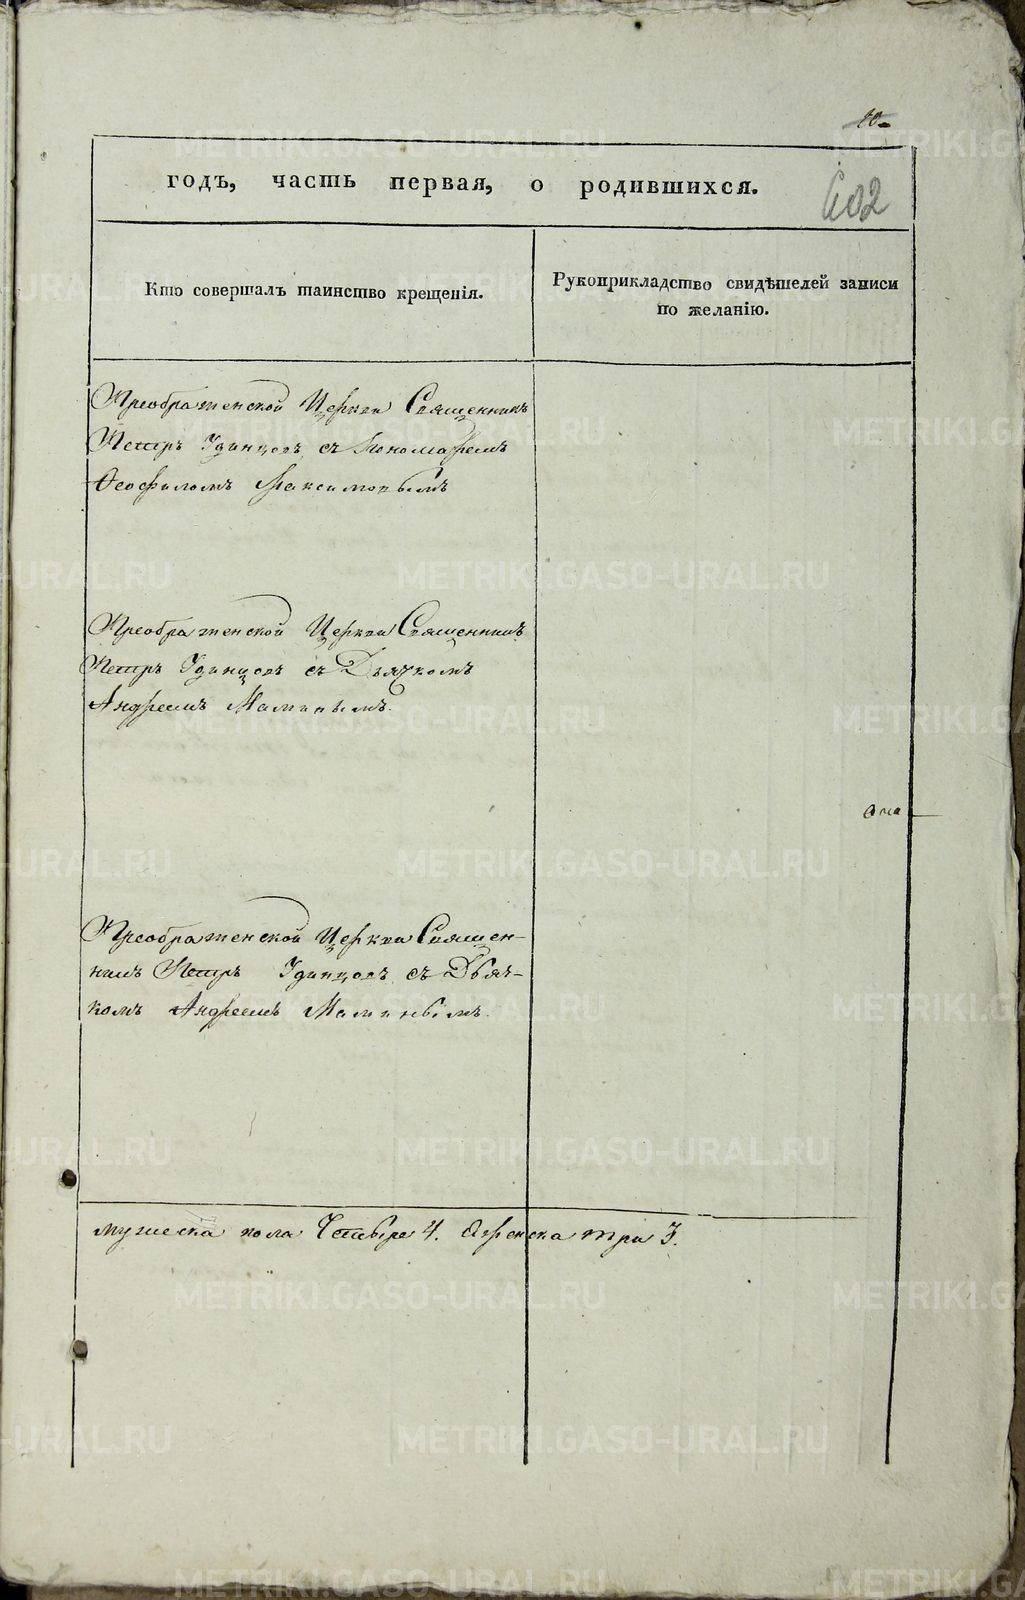 10.
годъ, часть первая, о родившихся.
602
Кто совершалъ таинство крещенія.
Рукоприкладство свидѣтелей записи
по желанію.
Преображенской Церкви Священникъ
Петръ Удинцовъ съ Пономаремъ
Ѳеофиломъ Максимовымъ
Преображенской Церкви Священникъ
Петръ Удинцовъ съ Дьячкомъ
Андреемъ Маминымъ.
Преображенской Церкви Священ-
никъ Петръ Удинцовъ съ Дьяч-
комъ Андреемъ Маминымъ.
мужеска пола Четыре 4. Женска три 3.
METRIKI.GASO-URAL.RU